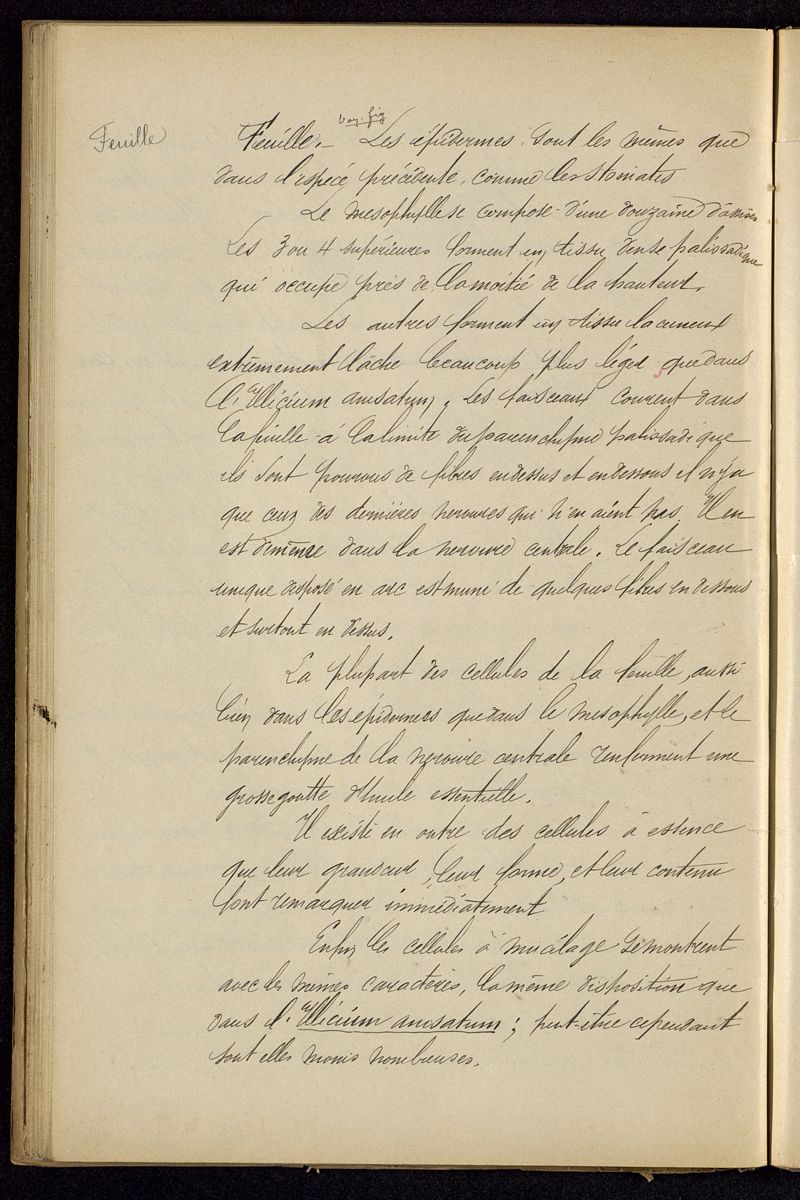 Feuille
voy. fig
Feuille. _ Les épidermes sont les mêmes que
dans l'espèce précédente, comme les stomates
Le mesophylle se compose d'une douzaine d'assises
Les 3 ou 4 supérieures forment un tissu dense palissadique
qui occupe près de la moitié de la hauteur.
Les autres forment un tissu lacuneux
extrêmement lâche beaucoup plus léger que dans
l'Illicium anisatum. Les faisceaux courent dans
la feuille à la limite du parenchyme palissadique
ils sont pourvus de fibres en dessus et en dessous il n'y a
que ceux des dernières nervures qui n'en aient pas. Il en
est de même dans la nervure centrale. Le faisceau
unique disposé en arc est muni de quelques fibres en dessous
et surtout en dessus.
La plupart des cellules de la feuille, aussi
bien dans les épidermes que dans le mesophylle, et le
parenchyme de la nervure centrale renferment une
grosse goutte d'huile essentielle.
Il existe en outre des cellules à essence
que leur grandeur, leur forme, et leur contenu
font remarquer immédiatement
Enfin les cellules à mucilage se montrent
avec les mêmes caractères, la même disposition que
dans l'Illicium anisatum ; peut-être cependant
sont elles moins nombreuses.